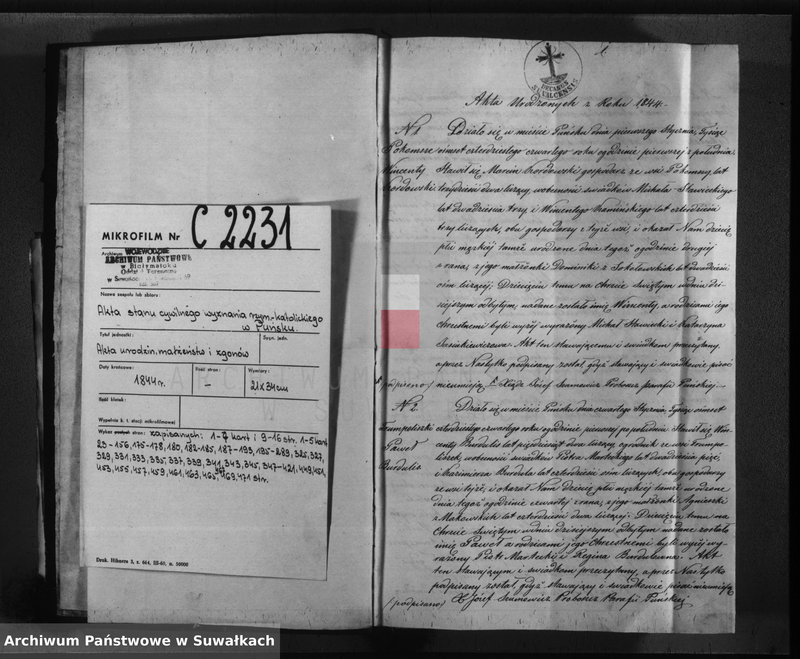 MIKROFILM Nr C 2231
Archiwum
WOJEWÓDZKIE
ARCHIWUM PAŃSTWOWE
w Białymstoku
Nazwa zespołu lub zbioru:
Akta stanu cywilnego wyznania rzym-katolickiego
w Puńsku.
Tytuł jednostki:
Sygn. jedn.
Akta urodzin, małżeństw i zgonów
Daty krańcowe:
Ilość stron:
Wymiary:
1844 r.
-
21x34cm
Ilość klatek:
Wypełnia k. t. stacji mikrofilmowej
Wykaz stron: zapisanych: 1-7 kart i 9-16 str. 1-5 kart
23-156, 175-178, 180, 182-185, 187-193, 195-289, 325, 327,
329, 331, 333, 335, 337, 339, 341, 343, 345, 347-421, 449, 451,
453, 455, 457, 459, 461, 463, 465, 469, 471 str.
Druk. Hibnera 3, z. 664, III-60, n. 50000
1
Akta Urodzonych z Roku 1844.
N 1
Działo się w mieście Puńsku dnia pierwszego Stycznia, Tysiąc
ośmset czterdziestego czwartego roku o godzinie pierwszej z południa.
Wincenty Stawił się Marcin gospodarz ze wsi
trzydzieści dwa liczący, w obecności świadków Michała Sławickiego
lat dwadzieścia trzy i Wincentego Kamińskiego lat czterdzieści
trzy liczących, obu gospodarzy z tyże wsi, i okazał Nam dziecię
płci męzkiej tamże urodzone dnia tegoż o godzinie drugiej
z rana, z jego małżonki Dominiki z lat dwadzieścia
ośm liczącej. Dziecięciu temu na Chrzcie świętym w dniu dzi-
siejszym odbytym, nadane zostało imię Wincenty, a rodzicami jego
chrzestnemi byli wyżej wyrażony Michał Sławicki i Katarzyna
Akt ten stawającemu i świadkom przeczytany,
a przez Nas tylko podpisany został, gdyż stawający i świadkowie pisać
/podpisano/ nieumieją. X Józef Proboszcz Parafii Puńskiej
N 2
Działo się w mieście Puńsku dnia czwartego Stycznia Tysiąc ośmset
czterdziestego czwartego roku o godzinie pierwszej po południu. Stawił się Win-
Paweł
centy Burdulis lat pięćdziesiąt dwa liczący ogrodnik ze wsi
w obecności świadków Piotra lat dwadzieścia pięć,
Burdulis
i Kazimierza Burdula lat czterdzieści ośm liczących, obu gospodarzy
ze wsi tejże, i okazał Nam dziecię płci męzkiej tamże urodzone
dnia tegoż o godzinie czwartej z rana, z jego małżonki Agnieszki
z lat czterdzieści dwa liczącej. Dziecięciu temu na
Chrzcie świętym w dniu dzisiejszym odbytym nadane zostało
imię Paweł a rodzicami jego Chrzestnemi byli wyżej wy-
rażony Piotr i Regina Akt
ten stawającym i świadkom przeczytany, a przez Nas tylko
podpisany został, gdyż stawający i świadkowie pisać nieumieją
/podpisano/ X Józef Proboszcz Parafii Puńskiej
Archiwum Państwowe w Suwałkach